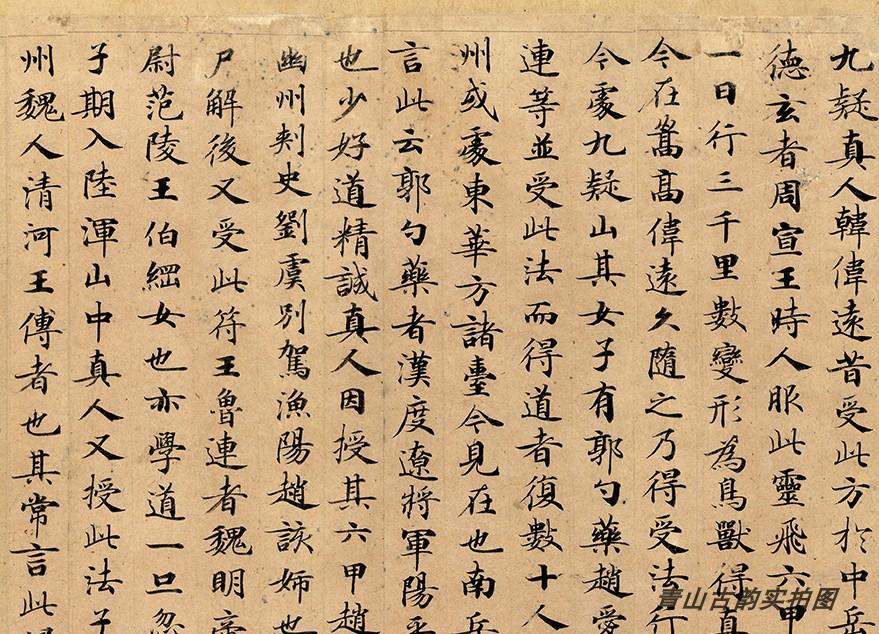 九疑真人韓偉遠昔受此方於中岳
德玄者周宣王時人服此靈飛六甲
一日行三千里數變形為鳥獸得真
今在嵩高偉遠久隨之乃得受法行
今處九疑山其女子有郭勺藥趙愛
連等並受此法而得道者復數十人
州或處東華方諸臺今見在也南岳
言此云郭勺藥者漢度遼將軍陽平
也少好道精誠真人因授其六甲趙
幽州刾史劉虞别駕漁陽趙該姊也
尸解後又受此符王魯連者魏明帝
尉范陵王伯綱女也亦學道一旦忽
子期入陸渾山中真人又授此法子
州魏人清河王傅者也其常言此
青山古韵实拍图